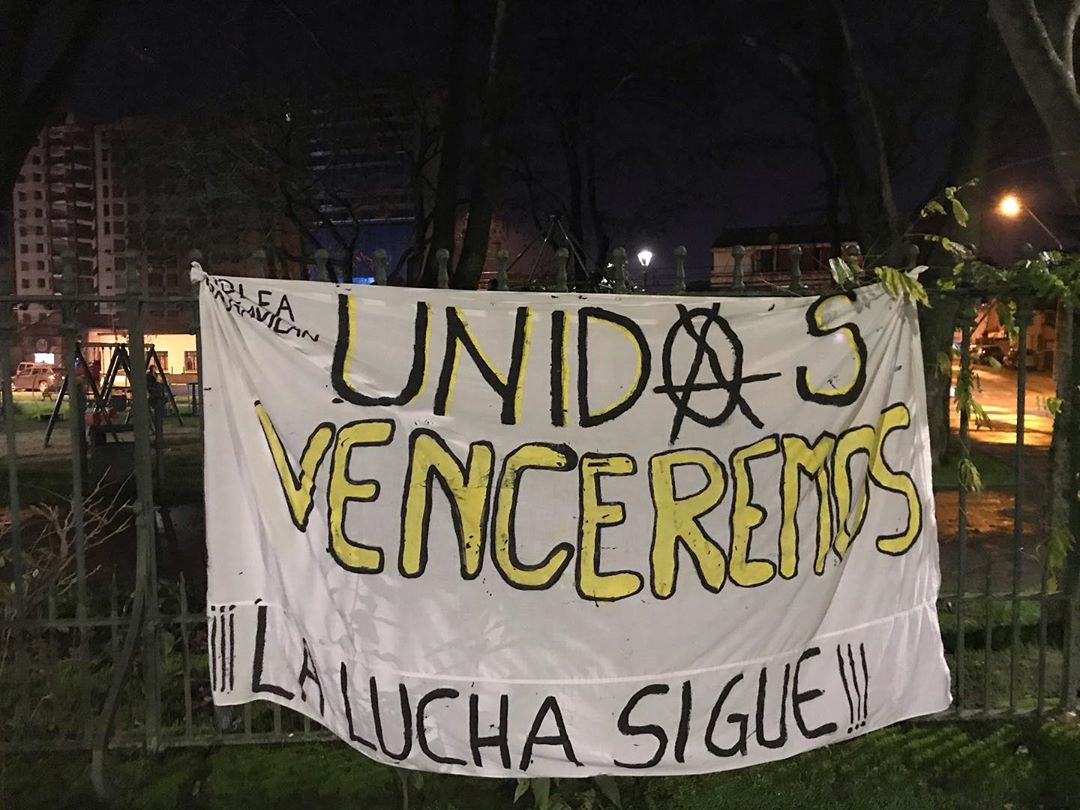 UNIDAS
VENCEREMOS
¡¡¡LA LUCHA SIGUE!!!